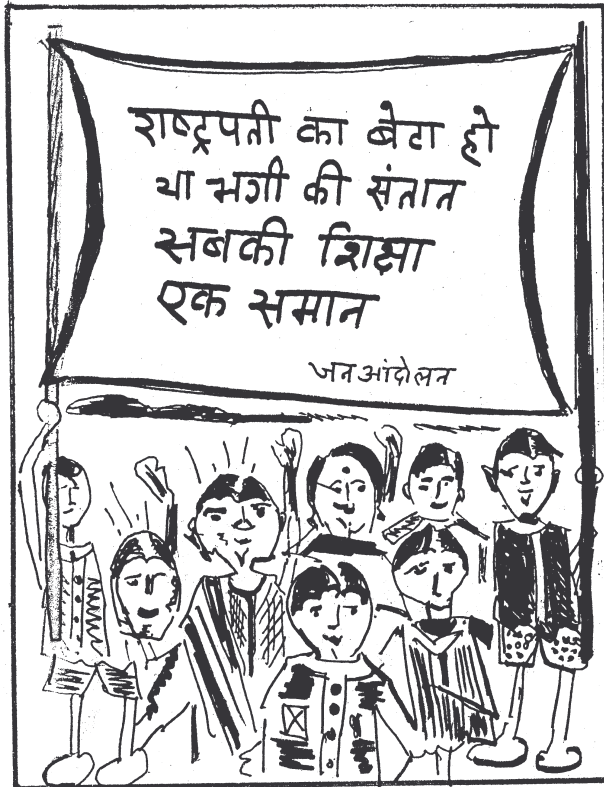 राष्ट्रपती का बेटा हो
या भगी की संतान
सबकी शिक्षा
एक समान
जन आंदोलन